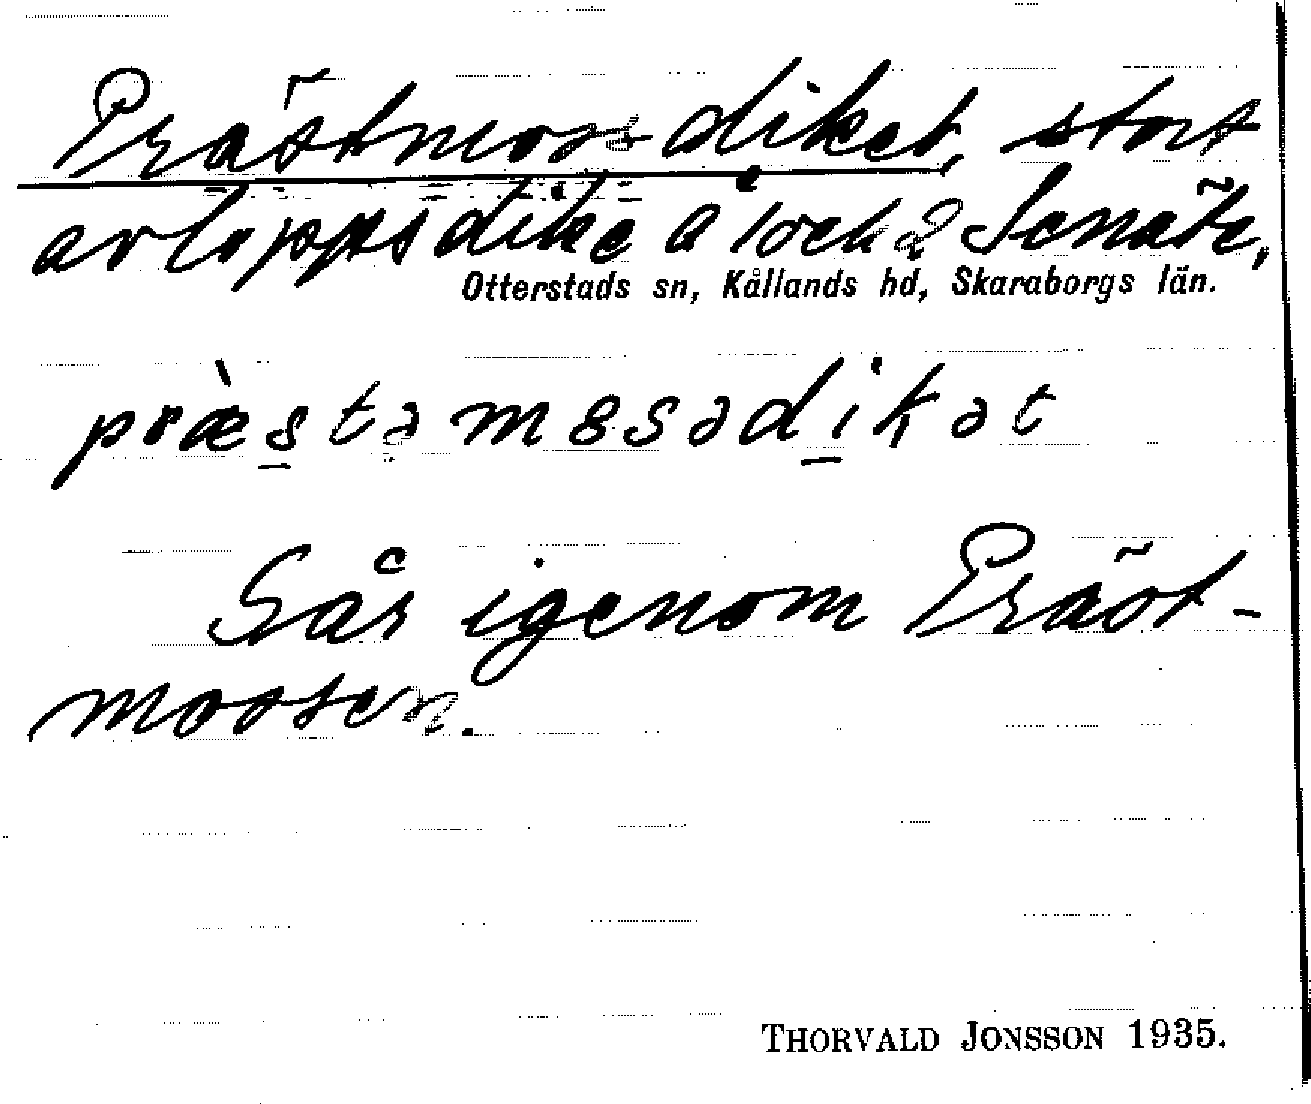 Prästmossdiket, stort
avloppsdike å 1 och 2 Senäte,
Otterstads sn, Kållands hd, Skaraborgs län.
præ̀stəmosədikət
Går igenom Präst-
mossen.
THORVALD JONSSON 1935.